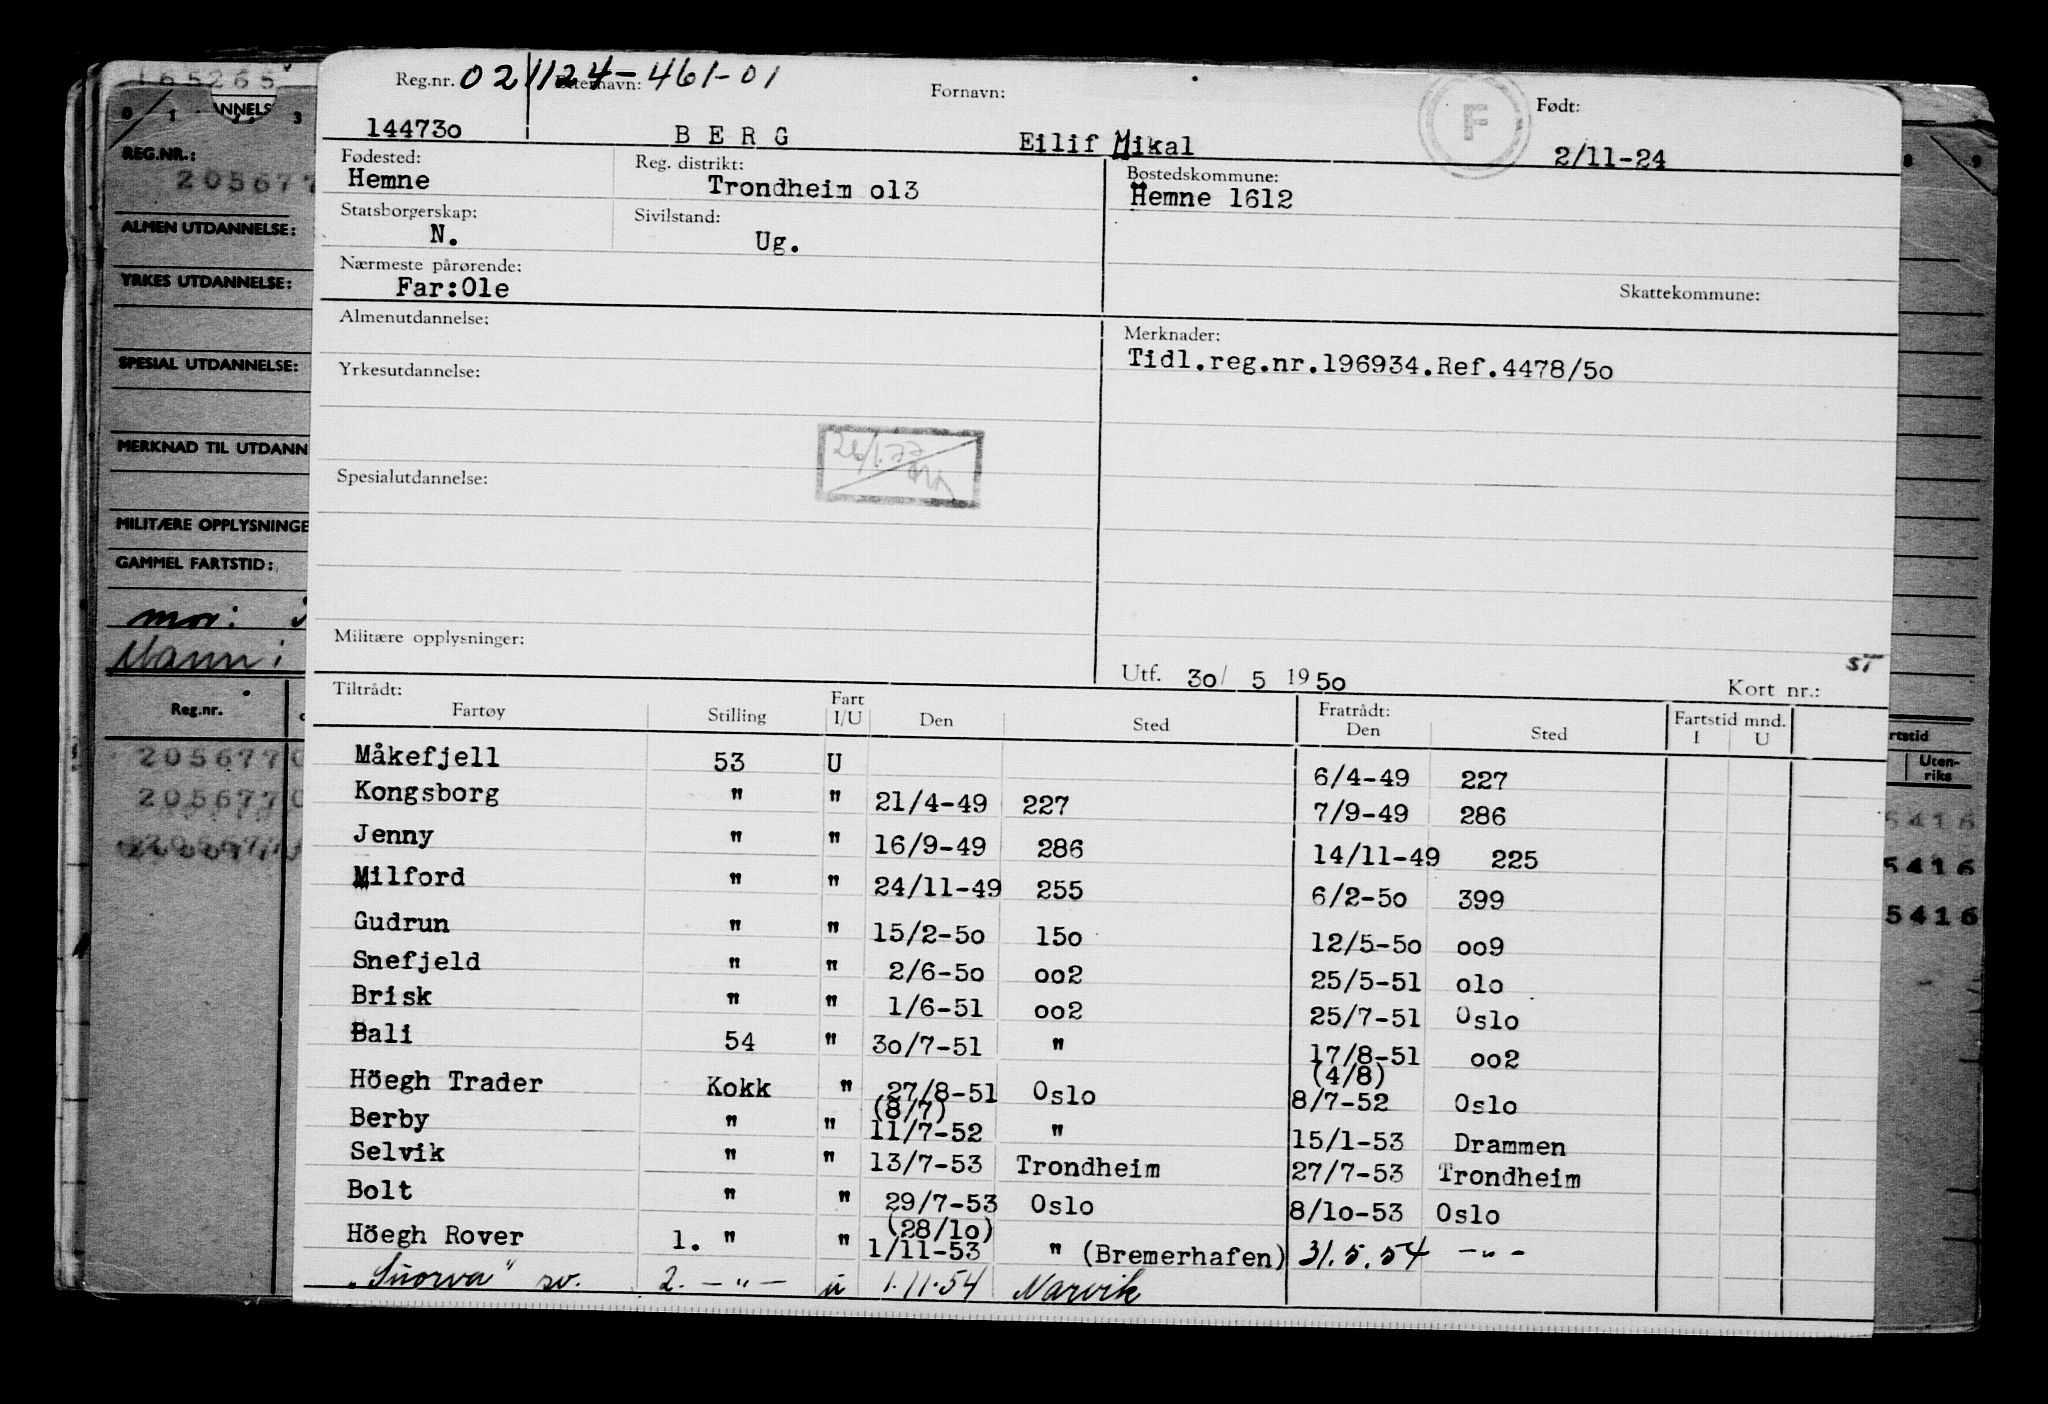 165265
Reg.nr. 021124-461-01 Etternavn: Fornavn: F Født:
144730 B E R G Eilif Mikal 2/11-24
Fødested: Reg. distrikt: Bostedskommune:
Hemne Trondheim o13 Hemne 1612
Statsborgerskap: Sivilstand:
N. Ug.
Nærmeste pårørende: Skattekommune:
Far:Ole
Almenutdannelse: Merknader:
Tidl.reg.nr.196934.Ref.4478/5o
Yrkesutdannelse:
26/1.77
Spesialutdannelse:
Militære opplysninger: ST
Utf. 3o/ 5 19 5o Kort nr.:
Tiltrådt: Fart Fratrådt: Fartstid mnd.
Fartøy Stilling I/U Den Sted Den Sted I U
Måkefjell 53 U 6/4-49 227
Kongsborg " " 21/4-49 227 7/9-49 286
Jenny " " 16/9-49 286 14/11-49 225
Milford " " 24/11-49 255 6/2-5o 399
Gudrun " " 15/2-5o 15o 12/5-5o oo9
Snefjeld " " 2/6-5o oo2 25/5-51 o1o
Brisk " " 1/6-51 oo2 25/7-51 Oslo
Bali 54 " 3o/7-51 " 17/8-51 oo2
(4/8)
Höegh Trader Kokk " 27/8-51 Oslo 8/7-52 Oslo
(8/7)
Berby " " 11/7-52 " 15/1-53 Drammen
Selvik " " 13/7-53 Trondheim 27/7-53 Trondheim
Bolt " " 29/7-53 Oslo 8/1o-53 Oslo
(28/1o)
Höegh Rover 1. " " 1/11-53 " (Bremerhafen) 31.5.54 -"-
"Snorva" sv. 2. -"- u 1.11.54 Narvik
0 1 3
REG.NR.:
205677
ALMEN UTDANNELSE:
YRKES UTDANNELSE:
SPESIAL UTDANNELSE:
MERKNAD TIL UTDANN
MILITÆRE OPPLYSNINGE
GAMMEL FARTSTID:
mor:
Navn:
Reg.nr.
205677
205677
8 9
rtstid
Uten-
riks
5416
5416
5416